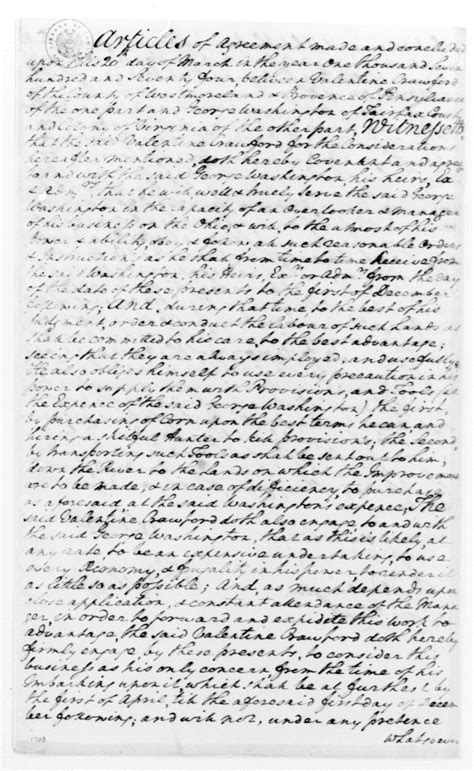 Articles of Agreement made and concluded
upon this 20th day of March in the year One thousand Seven
hundred and Seventy four, between Valentine Crawford
of the County of Westmoreland & Provence of Pensylvania
of the one part and George Washington of Fairfax County
and Colony of Virginia of the other part, Witnesseth
that the said Valentine Crawford for the Considerations
hereafter mentioned, doth hereby Covenant and agree
to and with the said George Washington, his heirs, Exrs
& Admrs, that he will, well & truely serve the said George
Washington in the capacity of an Overlooker & Manager
of his business on the Ohio; & will, to the utmost of his
power & ability, obey & follow, all such reasonable Orders
& Instructions, as he shall from time to time Receive from
the said Washington, his Heirs, Exrs or Admrs from the day
of the date of these presents to the first of December
following; And, during that time, to the best of his
Judgment, order & conduct the labour of such hands as
shall be committed to his care, to the best advantage;
seeing that they are always employed, and usefully so.
He also obliges himself to use every precaution in his
power to supply them with Provisions, and Tools (at
the Expence of the said George Washington) the first,
by purchasing of Corn upon the best terms he can and
hiring a skilful Hunter to kill provisions; the second,
by transporting such Tools as shall be sent out to him,
down the River to the Lands on which the Improvements
are to be made, & in case of difficiency to purchase
as aforesaid at the said Washington's expence. The
said Valentine Crawford doth also engage to and with
the said George Washington, that as this is likely, at
any rate to be an expensive undertaking, to use
every Economy, & frugality in his power to render it
as little so as possible; And, as much depends upon
close application, & constant attendance of the Mana-
ger, in order to forward and expidite this work to
advantage, the said Valentine Crawford doth hereby
firmly engage, by these presents, to consider this
business as his only concern from the time of his
Imbarking upon it, which shall be at furthest by
the first of April, till the aforesaid first day of Decem-
ber following; and will not, under any pretence
whatsoever